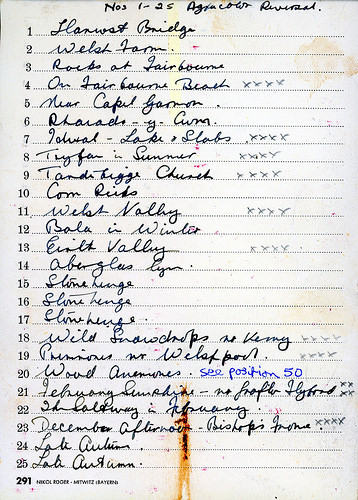 Nos 1-25 Agfacolor Reversal.
1 Llanwst Bridge
2 Welsh Farm.
3 Rocks at Fairbourne
4 On Fairbourne Beach xxxx
5 Near Capel Garmon.
6 Rhaiadr-y-Cwm.
7 Idwal - Lake & Slabs. xxxx
8 Tryfan in Summer xxxx
9 Tardebigge Church xxxx
10 Corn Ricks
11 Welsh Valley xxxx
12 Bala in Winter
13 Valley xxxx
14
15 Stonehenge
16 Stonehenge
17 Stonehenge.
18 Wild Snowdrops nr Kerry xxxx
19 Primroses nr Welshpool. xxxx
20 Wood Anemones. see position 50
21 February Sunshine - xx xx
22 in February.
23 December afternoon - Bishop's xxxx
24 Late Autumn.
25 Late Autumn.
291 (BAYERN)